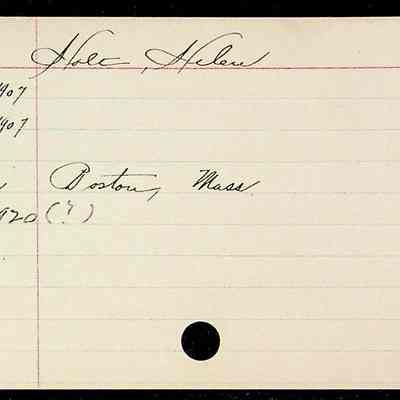 Holt, Helen
1907
1907
Boston, Mass.
1920 (?)